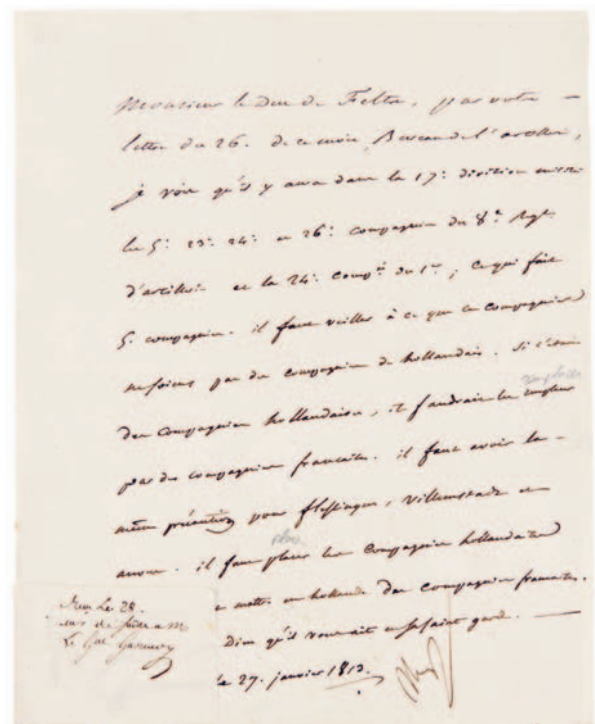 Monsieur le Duc de Feltre, par votre —
lettre du 26. de ce mois, Bureau de l'artillerie,
je vois qu'il y aura dans la 17e. division militre
les 5e. 23e. 24e. et 26e. compagnies du 8e. Regt.
d'artillerie et la 24e. compie du 1er; ce qui fait
5. compagnies. il faut veiller à ce que ces compagnies
ne soient pas des compagnies de hollandais. Si c'étaient
des compagnies hollandaises, il faudrait les remplacer
remplacer
par des compagnies francaises. il faut avoir la —
même précaution pour flessingue, Villemstadt et
placer
anvers. il faut placer les compagnies hollandaises
mettre en hollande des compagnies francaises.
Dieu qu'il vous ait en sa saint garde. —
le 27. janvier 1813.
Le 28.
Le Gal Gassendi